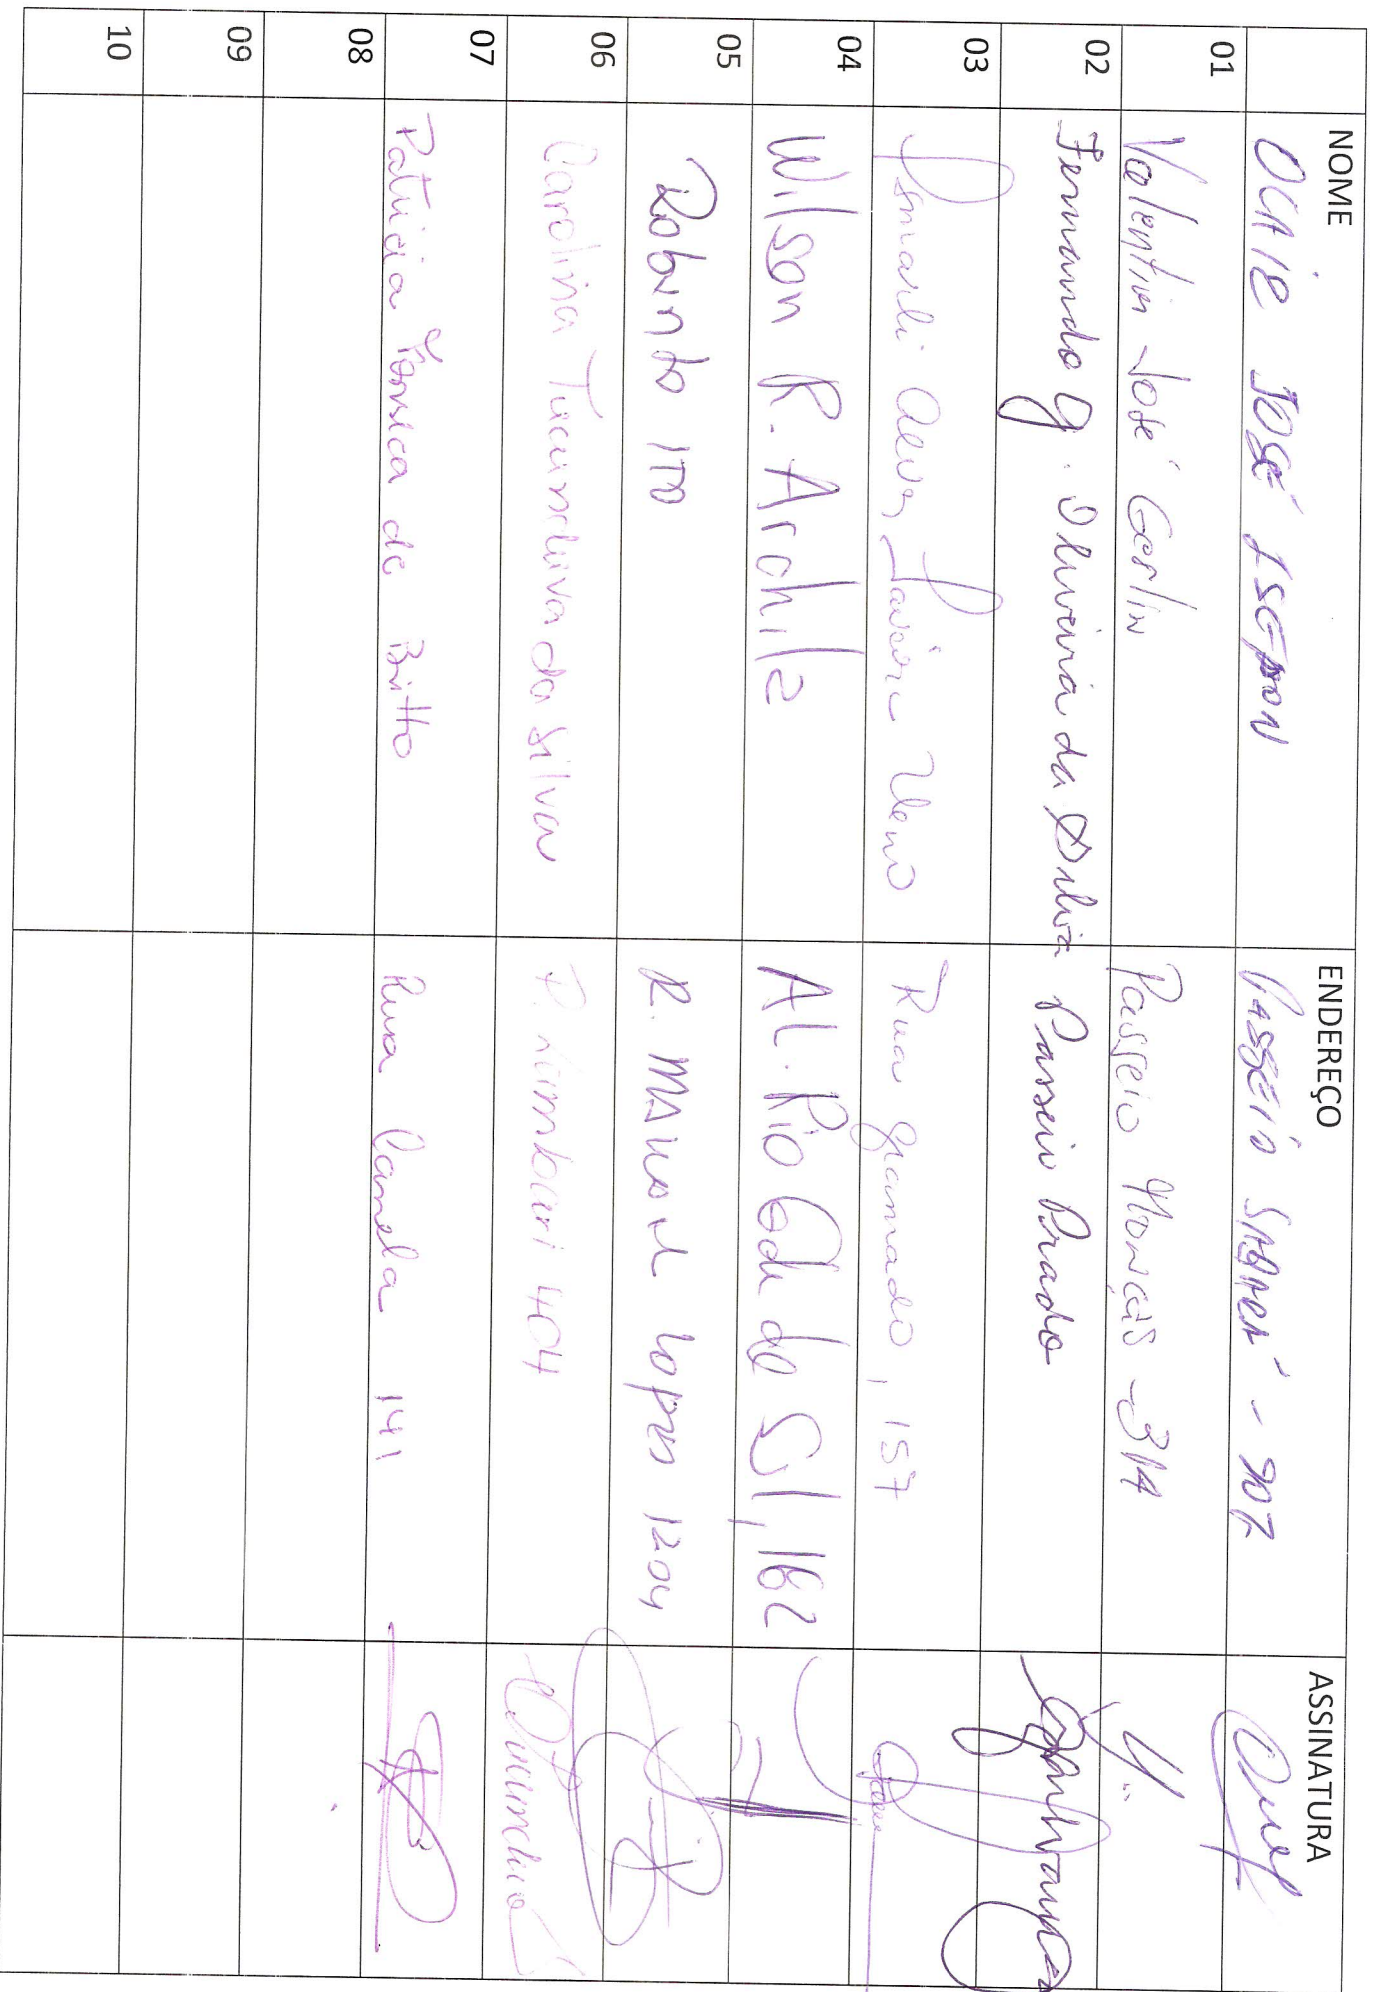 NOME ENDEREÇO ASSINATURA
01 JOSÉ ISEPON PASSEIO - 907
02 Valentim José Gerlin Passeio Monções - 314
03 Fernando G. Oliveira da Silva Passeio Prado
04 Rua Gramado, 157
05 Wilson R. Archilz AL. Rio Gde do Sl, 162
06 Roberto ITO R. MANOEL Lopes 1204
07 Carolina da Silva 404
08 Patricia Fonseca de Britto Rua Canela 141
09
10